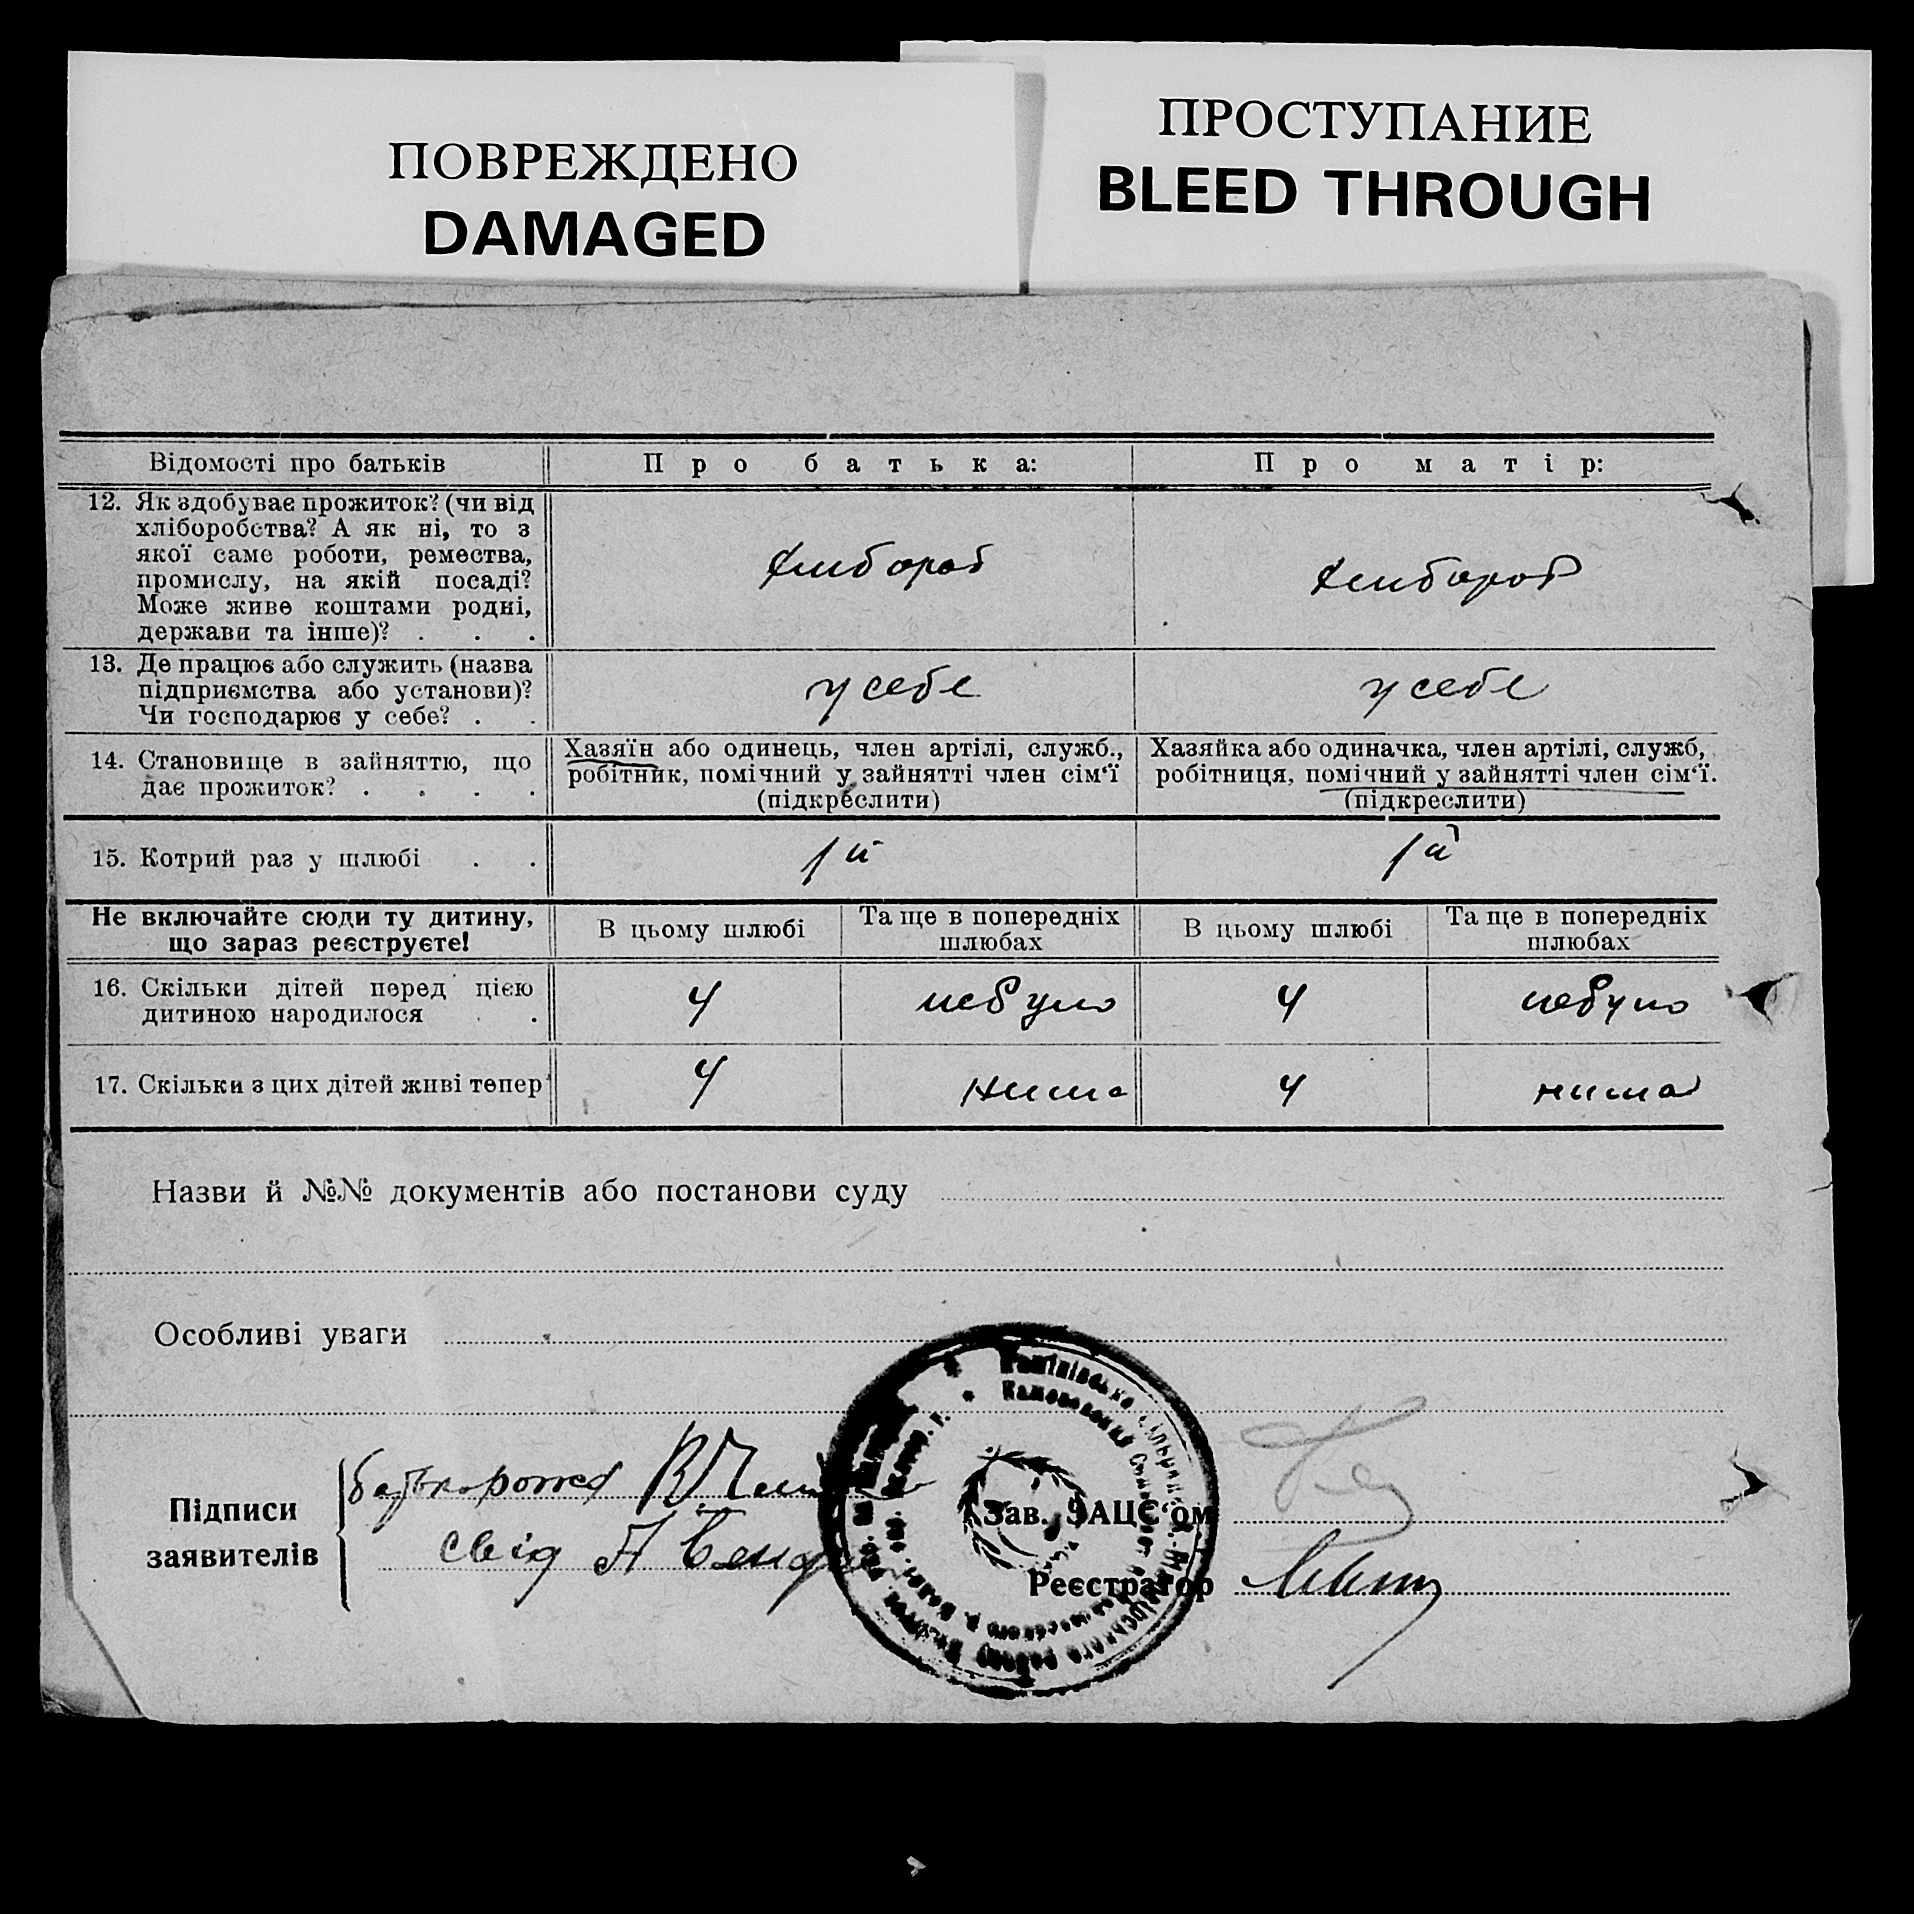 ПОВРЕЖДЕНО
DAMAGED
ПРОСТУПАНИЕ
BLEED THROUGH
Відомості про батьків
Про батька:
Про матір:
12. Як здобуває прожиток? (чи від
хліборобства? А як ні, то з
якої саме роботи, ремества,
промислу, на якій посаді?
Може живе коштами родні,
держави та інше)? . . .
хлибороб
хлибороб
13. Де працює або служить (назва
підприємства або установи)?
Чи господарює у себе? . .
у себе
у себе
14. Становище в зайняттю, що
дає прожиток? . . . .
Хазяїн або одинець, член артілі, служб.,
робітник, помічний у зайнятті член сім‘ї
(підкреслити)
Хазяйка або одиначка, член артілі, служб,
робітниця, помічний у зайнятті член сім‘ї.
(підкреслити)
15. Котрий раз у шлюбі . .
1й
1й
Не включайте сюди ту дитину,
що зараз реєструєте!
В цьому шлюбі
Та ще в попередніх
шлюбах
В цьому шлюбі
Та ще в попередніх
шлюбах
16. Скільки дітей перед цією
дитиною народилося .
4
небуло
4
небуло
17. Скільки з цих дітей живі тепер
4
нима
4
нима
Назви й №№ документів або постанови суду
Особливі уваги
Підписи
заявителів
свід А
Зав. ЗАЦС‘ом
Реєстратор